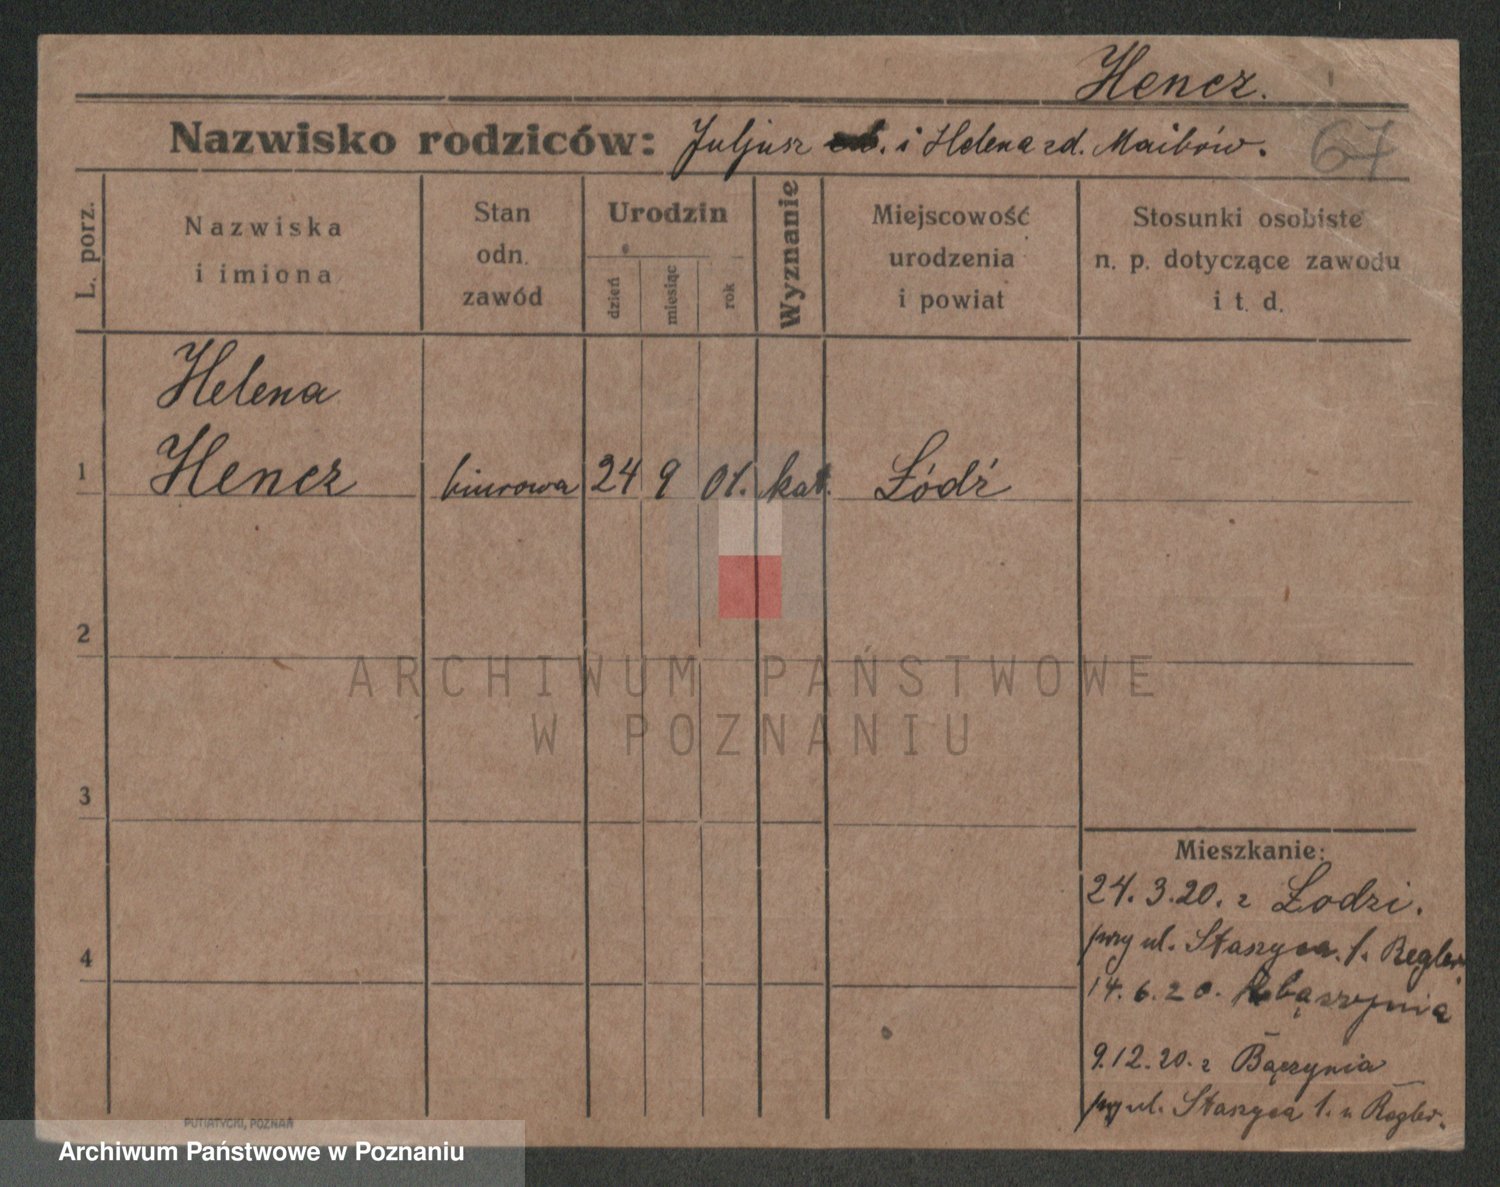 Hencz.
Nazwisko rodziców: Juljusz i Helena zd. Maibrów.
67
L. porz.
Nazwiska
i imiona
Stan
odn.
zawód
Urodzin
dzień
miesiąc
rok
Wyznanie
Miejscowość
urodzenia
i powiat
Stosunki osobiste
n. p. dotyczące zawodu
i t. d.
Helena
1 Hencz biurowa 24 9 01. kat. Łódź
2
ARCHIWUM PAŃSTWOWE
W POZNANIU
3
Mieszkanie:
24. 3. 20. z Łodzi.
4 przy ul. Staszyca. 1.
14. 6. 20.
9. 12. 20. z
przy ul. Staszyca 1. u
PUTIATYCKI, POZNAŃ
Archiwum Państwowe w Poznaniu